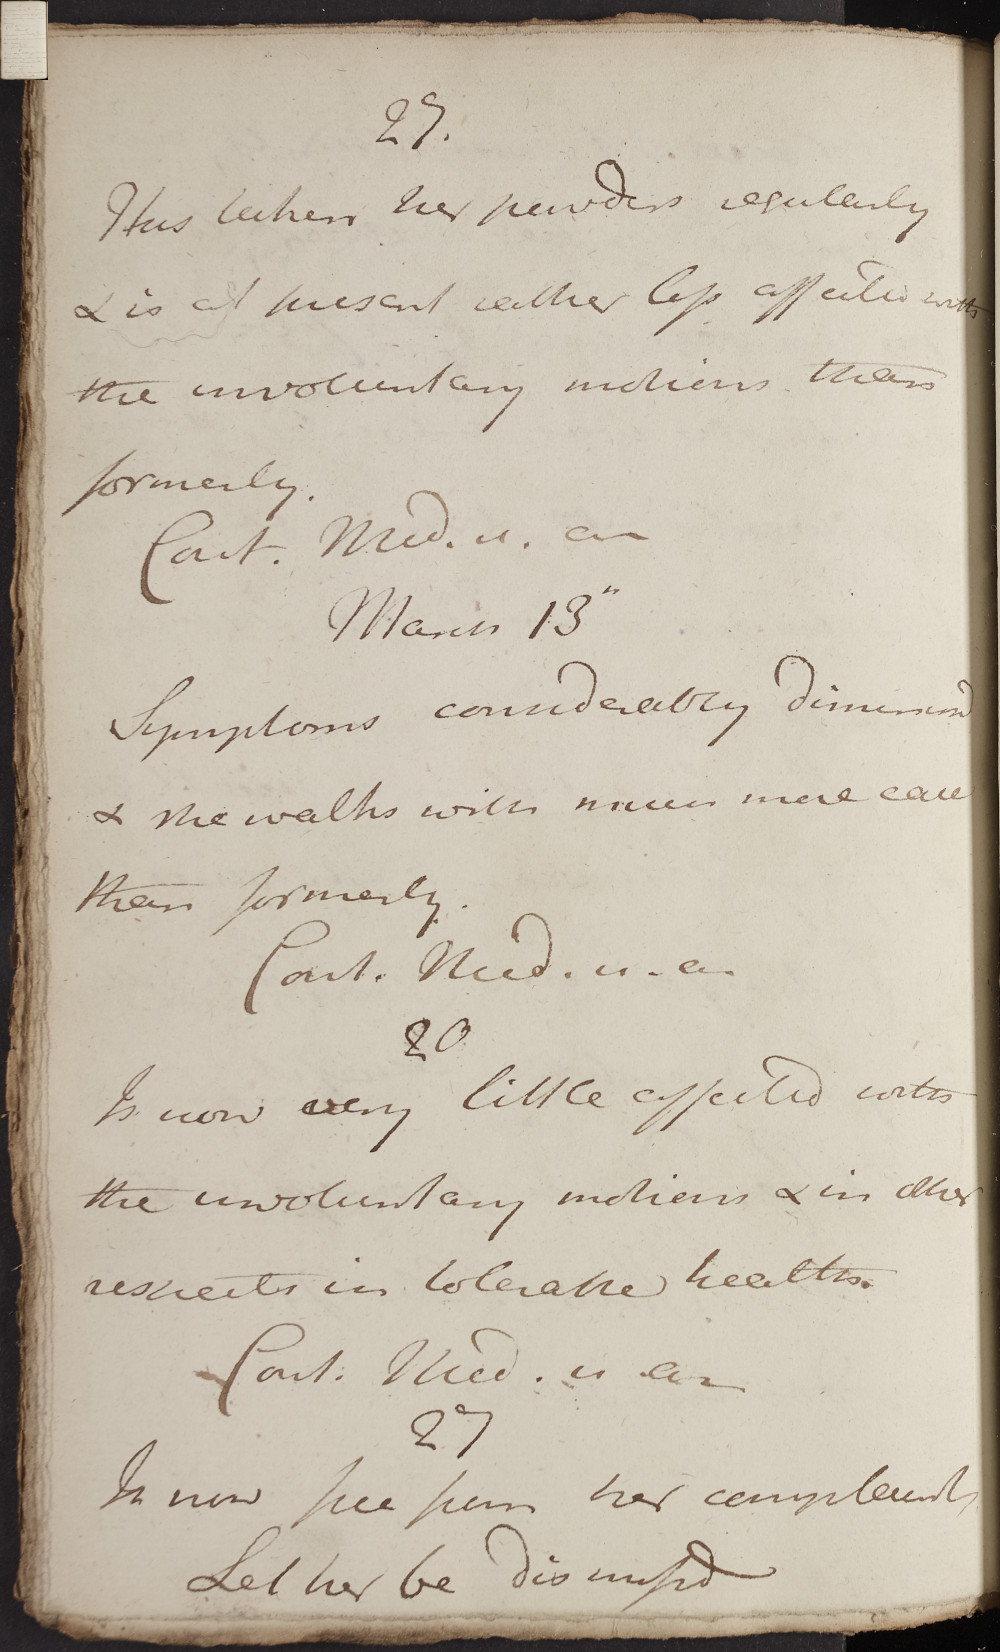 27.
Has taken her powders regularly
& is at present rather less affected with
the involuntary motions than
formerly.
Cont. Med. u. an
March 13"
Symptoms considerably diminisd
& she walks with much more ease
than formerly.
Cont. Med. u. a
20
Is now very little affected with
the involuntary motions & in other
respects in tolerable health.
Cont. Med. u an
27
Is now free from her complaints
Let her be dismissd